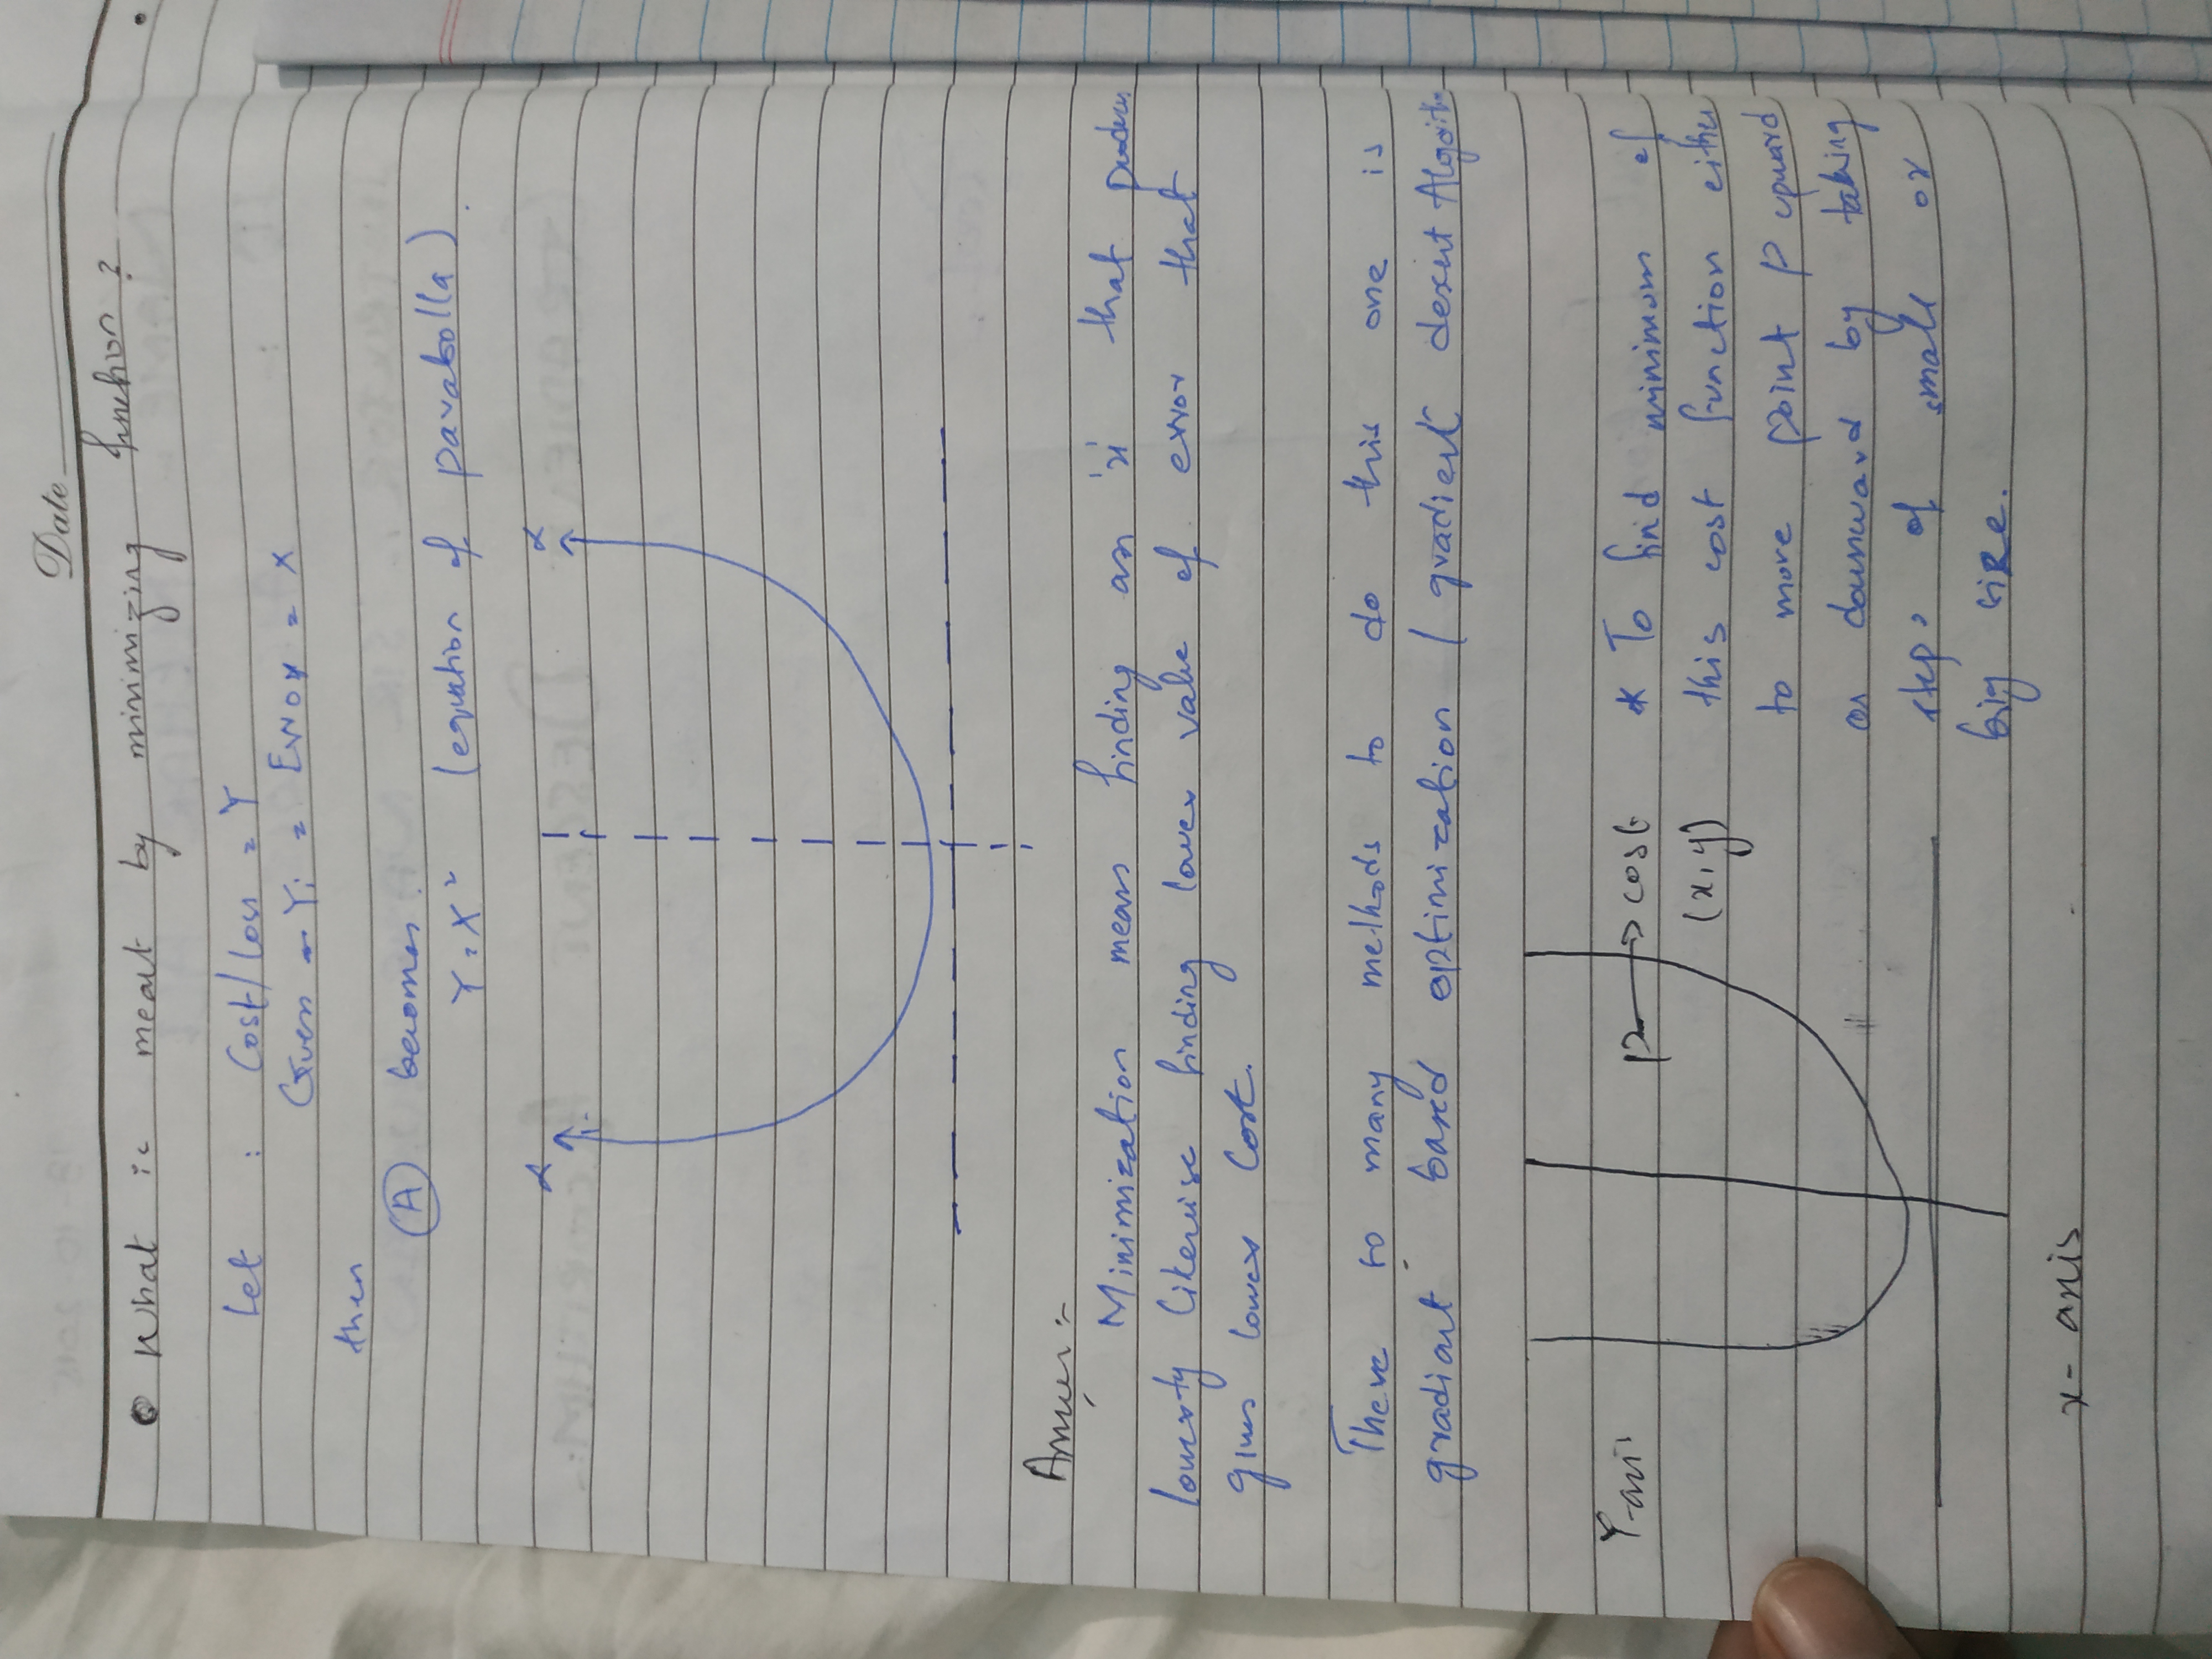 Date
What is meant by minimizing function?
Let : Cost/Loss = Y
Guess - Yi = Error = X
then
A becomes.
Y = X² (equation of parabolla).
α α
Answer:-
Minimization means finding an 'x' that produces
lowest y likewise finding lower value of error that
gives lowest Cost.
There so many methods to do this one is
gradient based optimization / gradient descent Algorithm
Y-axis
P → cost
(x, y)
* To find minimum of
this cost function either
to move point P upward
or downward by taking
steps of small or
big size.
x-axis